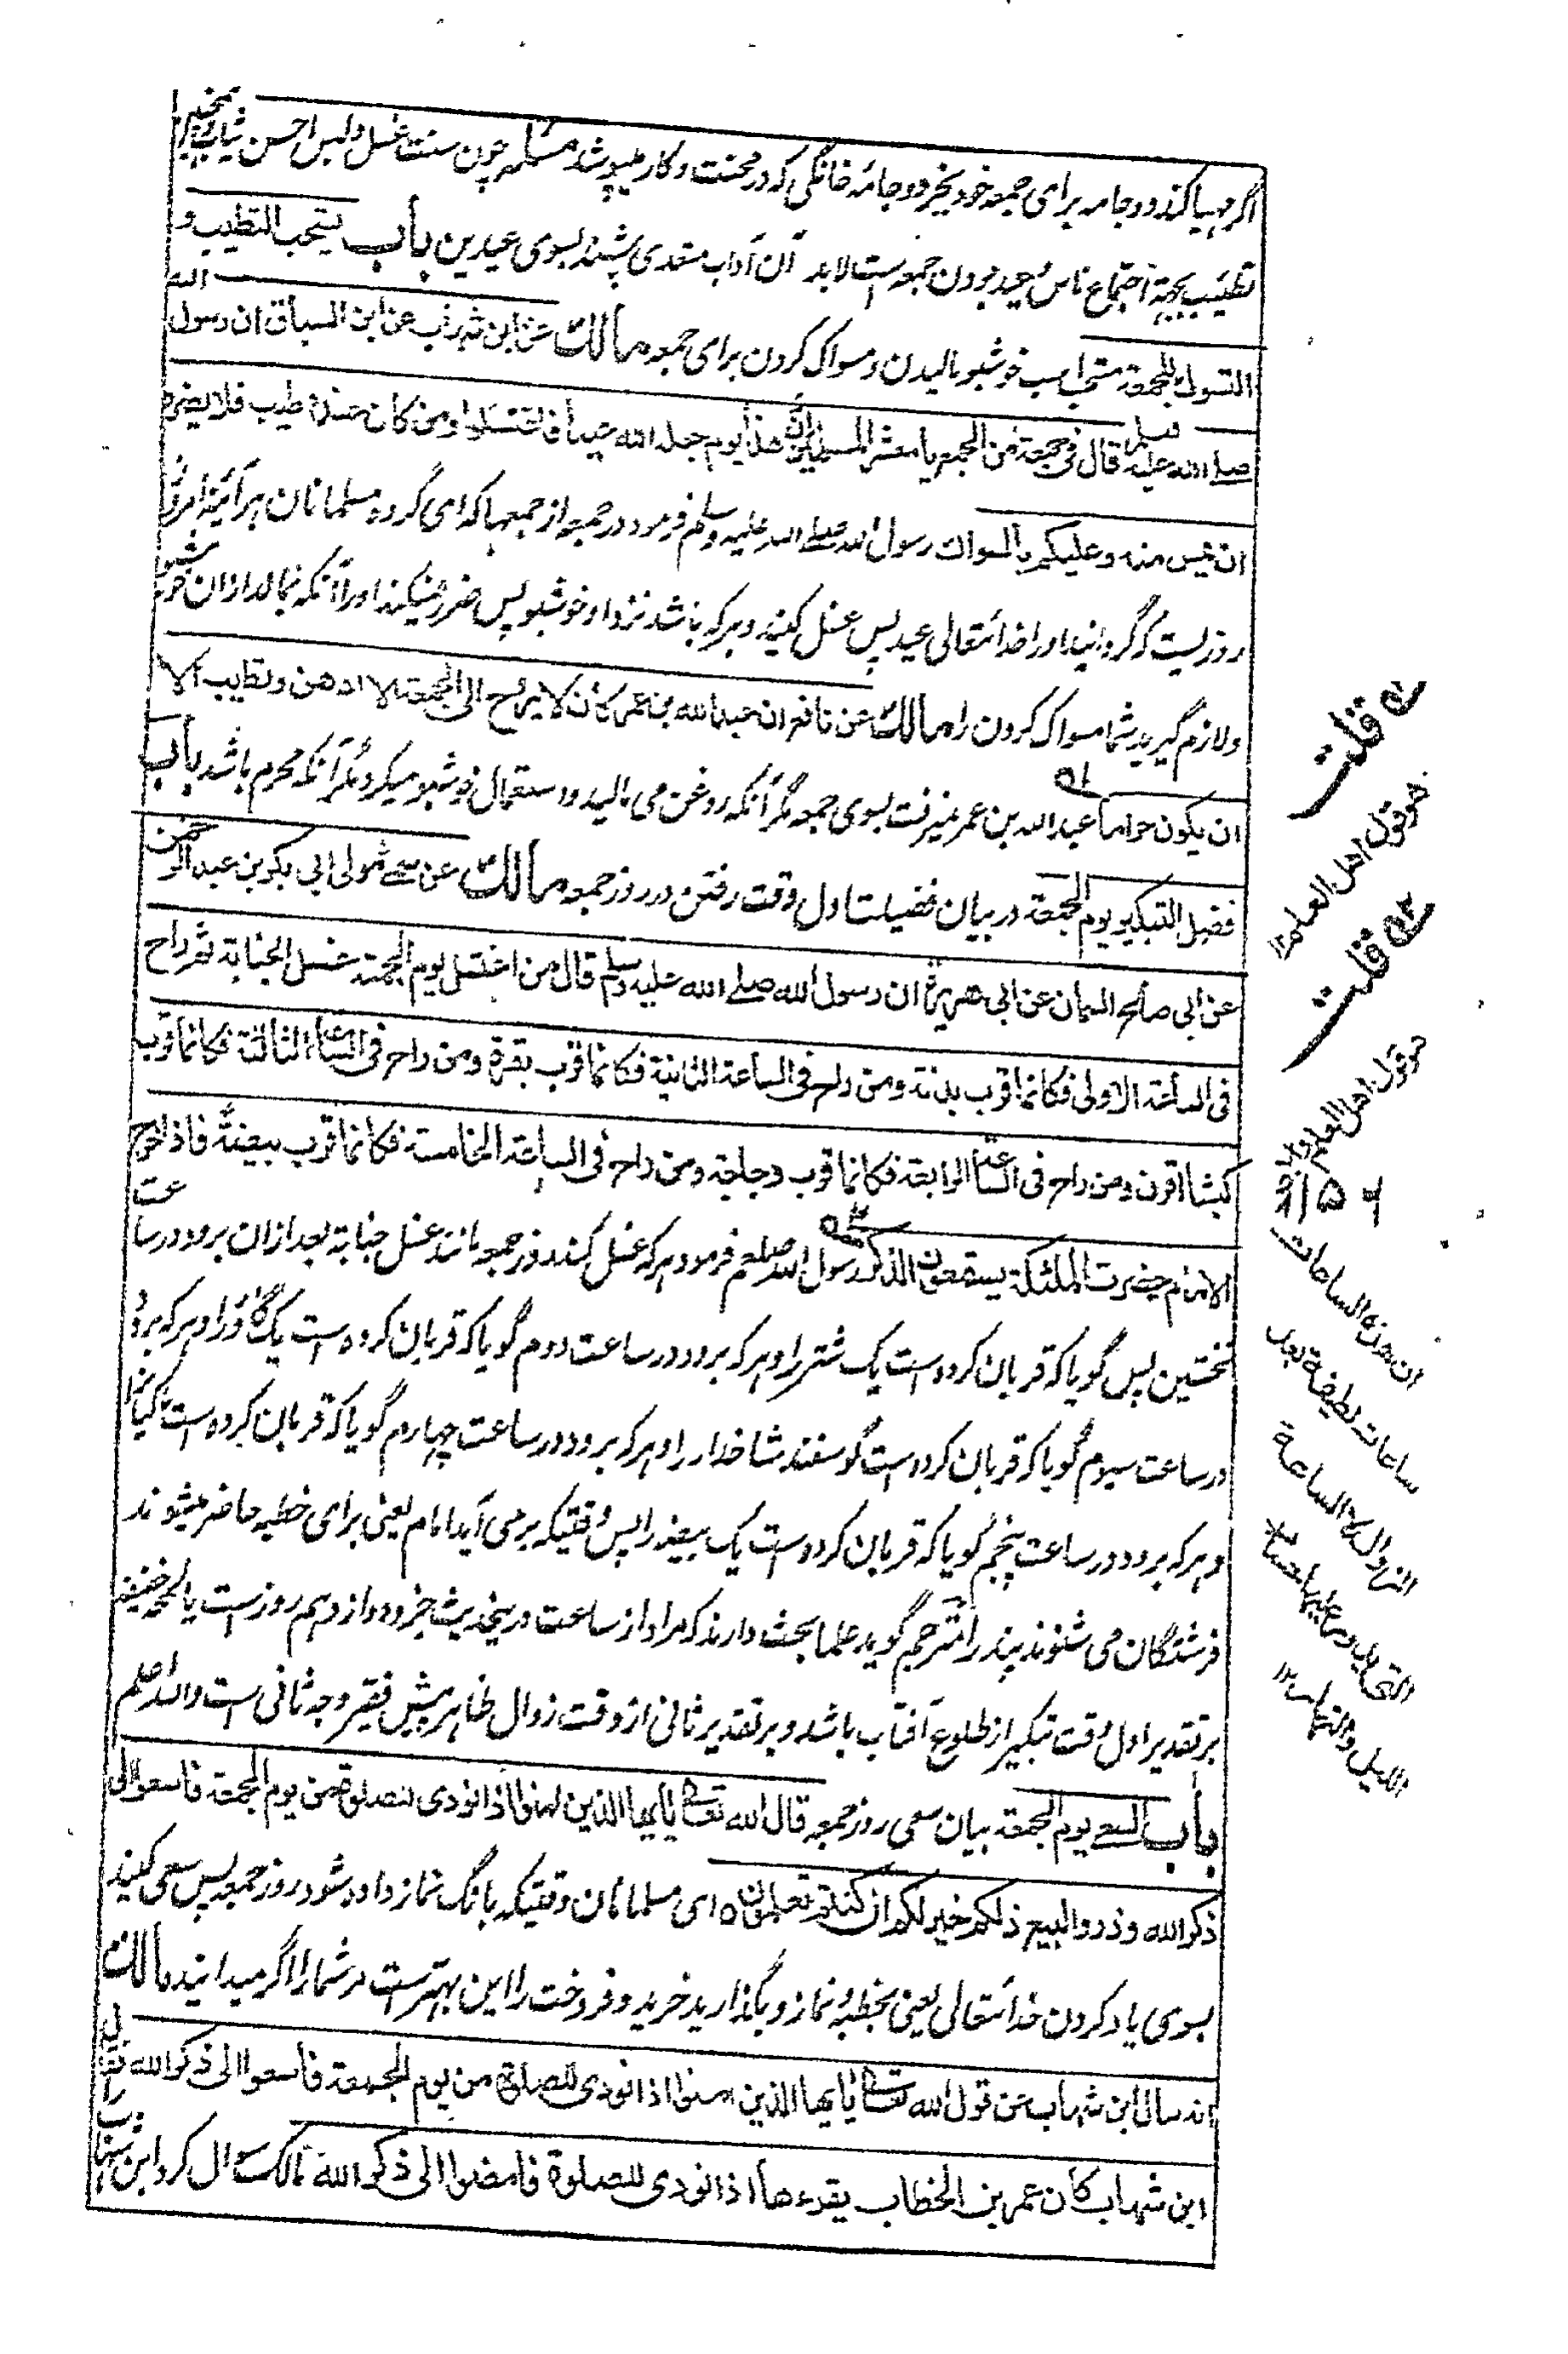 اگر مهیا کند دو جامه برای جمعه خود بخیر دو جامهٔ خانگی که در محنت و کار میپوشد مسئله چون سنت غسل ولبس احسن ثیاب
تطییب بجهة اجتماع ناس وعید بودن جمعه است لابد آن آداب متعدی شد بسوی عیدین باب یستحب التطیب و
التسوك للجمعة مستحب است خوشبو مالیدن و مسواک کردن برای جمعه مالك عن ابن شهاب عن ابن السباق ان رسول الله
صلے الله علیه وسلم قال فی جمعة من الجمع یا معشر المسلمین ان هذا یوم جعله الله عیدا فاغتسلوا ومن کان عنده طیب فلا یضره
ان یمس منه وعلیکم بالسواك رسول الله صلے الله علیه وسلم فرمود در جمعه از جمعها که ای گروه مسلمانان هرآئینه امروز
روزیست که گردانید او را خدایتعالی عید پس غسل کنید و هر که باشد نزد او خوشبو پس ضرر نمیکند او را آنکه بمالد از ان خوشبو
ولازم گیرید شما مسواک کردن را مالك عن نافع ان عبد الله بن عمر کان لا یروح الی الجمعة الا ادهن وتطیب الا
ان یکون حراما عبد الله بن عمر نمیرفت بسوی جمعه مگر آنکه روغن می مالید و استعمال خوشبو میکرد مگر آنکه محرم باشد باب
فضل التبکیر یوم الجمعة در بیان فضیلت اول وقت رفتن در روز جمعه مالك عن سمے مولی ابی بکر بن عبد الرحمن
عن ابی صالح السمان عن ابی هریرة ان رسول الله صلے الله علیه وسلم قال من اغتسل یوم الجمعة غسل الجنابة ثم راح
فی الساعة الاولی فکانما قرب بدنة ومن راح فی الساعة الثانیة فکانما قرب بقرة ومن راح فی الساعة الثالثة فکانما قرب
کبشا اقرن ومن راح فی الساعة الرابعة فکانما قرب دجاجة ومن راح فی الساعة الخامسة فکانما قرب بیضة فاذا خرج
الامام حضرت الملئکة یستمعون الذکر رسول الله صلعم فرمود هر که غسل کند روز جمعه مانند غسل جنابة بعد از ان برود در ساعت
نخستین پس گویا که قربان کرده است یک شتر را و هر که برود در ساعت دوم گویا که قربان کرده است یک گاو را و هر که برود
در ساعت سیوم گویا که قربان کرده است گوسفند شاخدار را و هر که برود در ساعت چهارم گویا که قربان کرده است ماکیان را
و هر که برود در ساعت پنجم گویا که قربان کرده است یک بیضه را پس وقتیکه برمی آید امام یعنی برای خطبه حاضر میشوند
فرشتگان می شنوند پند را مترجم گوید علما بحث دارند که مراد از ساعت درینحدیث جزو دوازدهم روز است یا لمحه خفیفه
بر تقدیر اول وقت تبکیر از طلوع آفتاب باشد و بر تقدیر ثانی از وقت زوال ظاهر پیش فقیر وجه ثانی است والله اعلم
باب السعے یوم الجمعة بیان سعی روز جمعه قال الله تعالی یایها الذین امنوا اذا نودی للصلوة من یوم الجمعة فاسعوا الی
ذکر الله وذروا البیع ذلکم خیر لکم ان کنتم تعلمون ه ای مسلمانان وقتیکه بانگ نماز داده شود روز جمعه پس سعی کنید
بسوی یاد کردن خدایتعالی یعنی بخطبه و نماز و بگذارید خرید و فروخت را این بهتر است مر شما را اگر میدانید مالك
انه سال ابن شهاب عن قول الله تعالی یایها الذین امنوا اذا نودی للصلوة من یوم الجمعة فاسعوا الی ذکر الله فقال
ابن شهاب کان عمر بن الخطاب یقرءها اذا نودی للصلوة فامضوا الی ذکر الله مالک سوال کرد ابن شهاب را
له قلت
هو قول اهل العلم
قلت
هو قول اهل العلم
ان هذه الساعات
ساعات لطیفة بعد
الزوال لا الساعة
اللیل والنهار ١٢